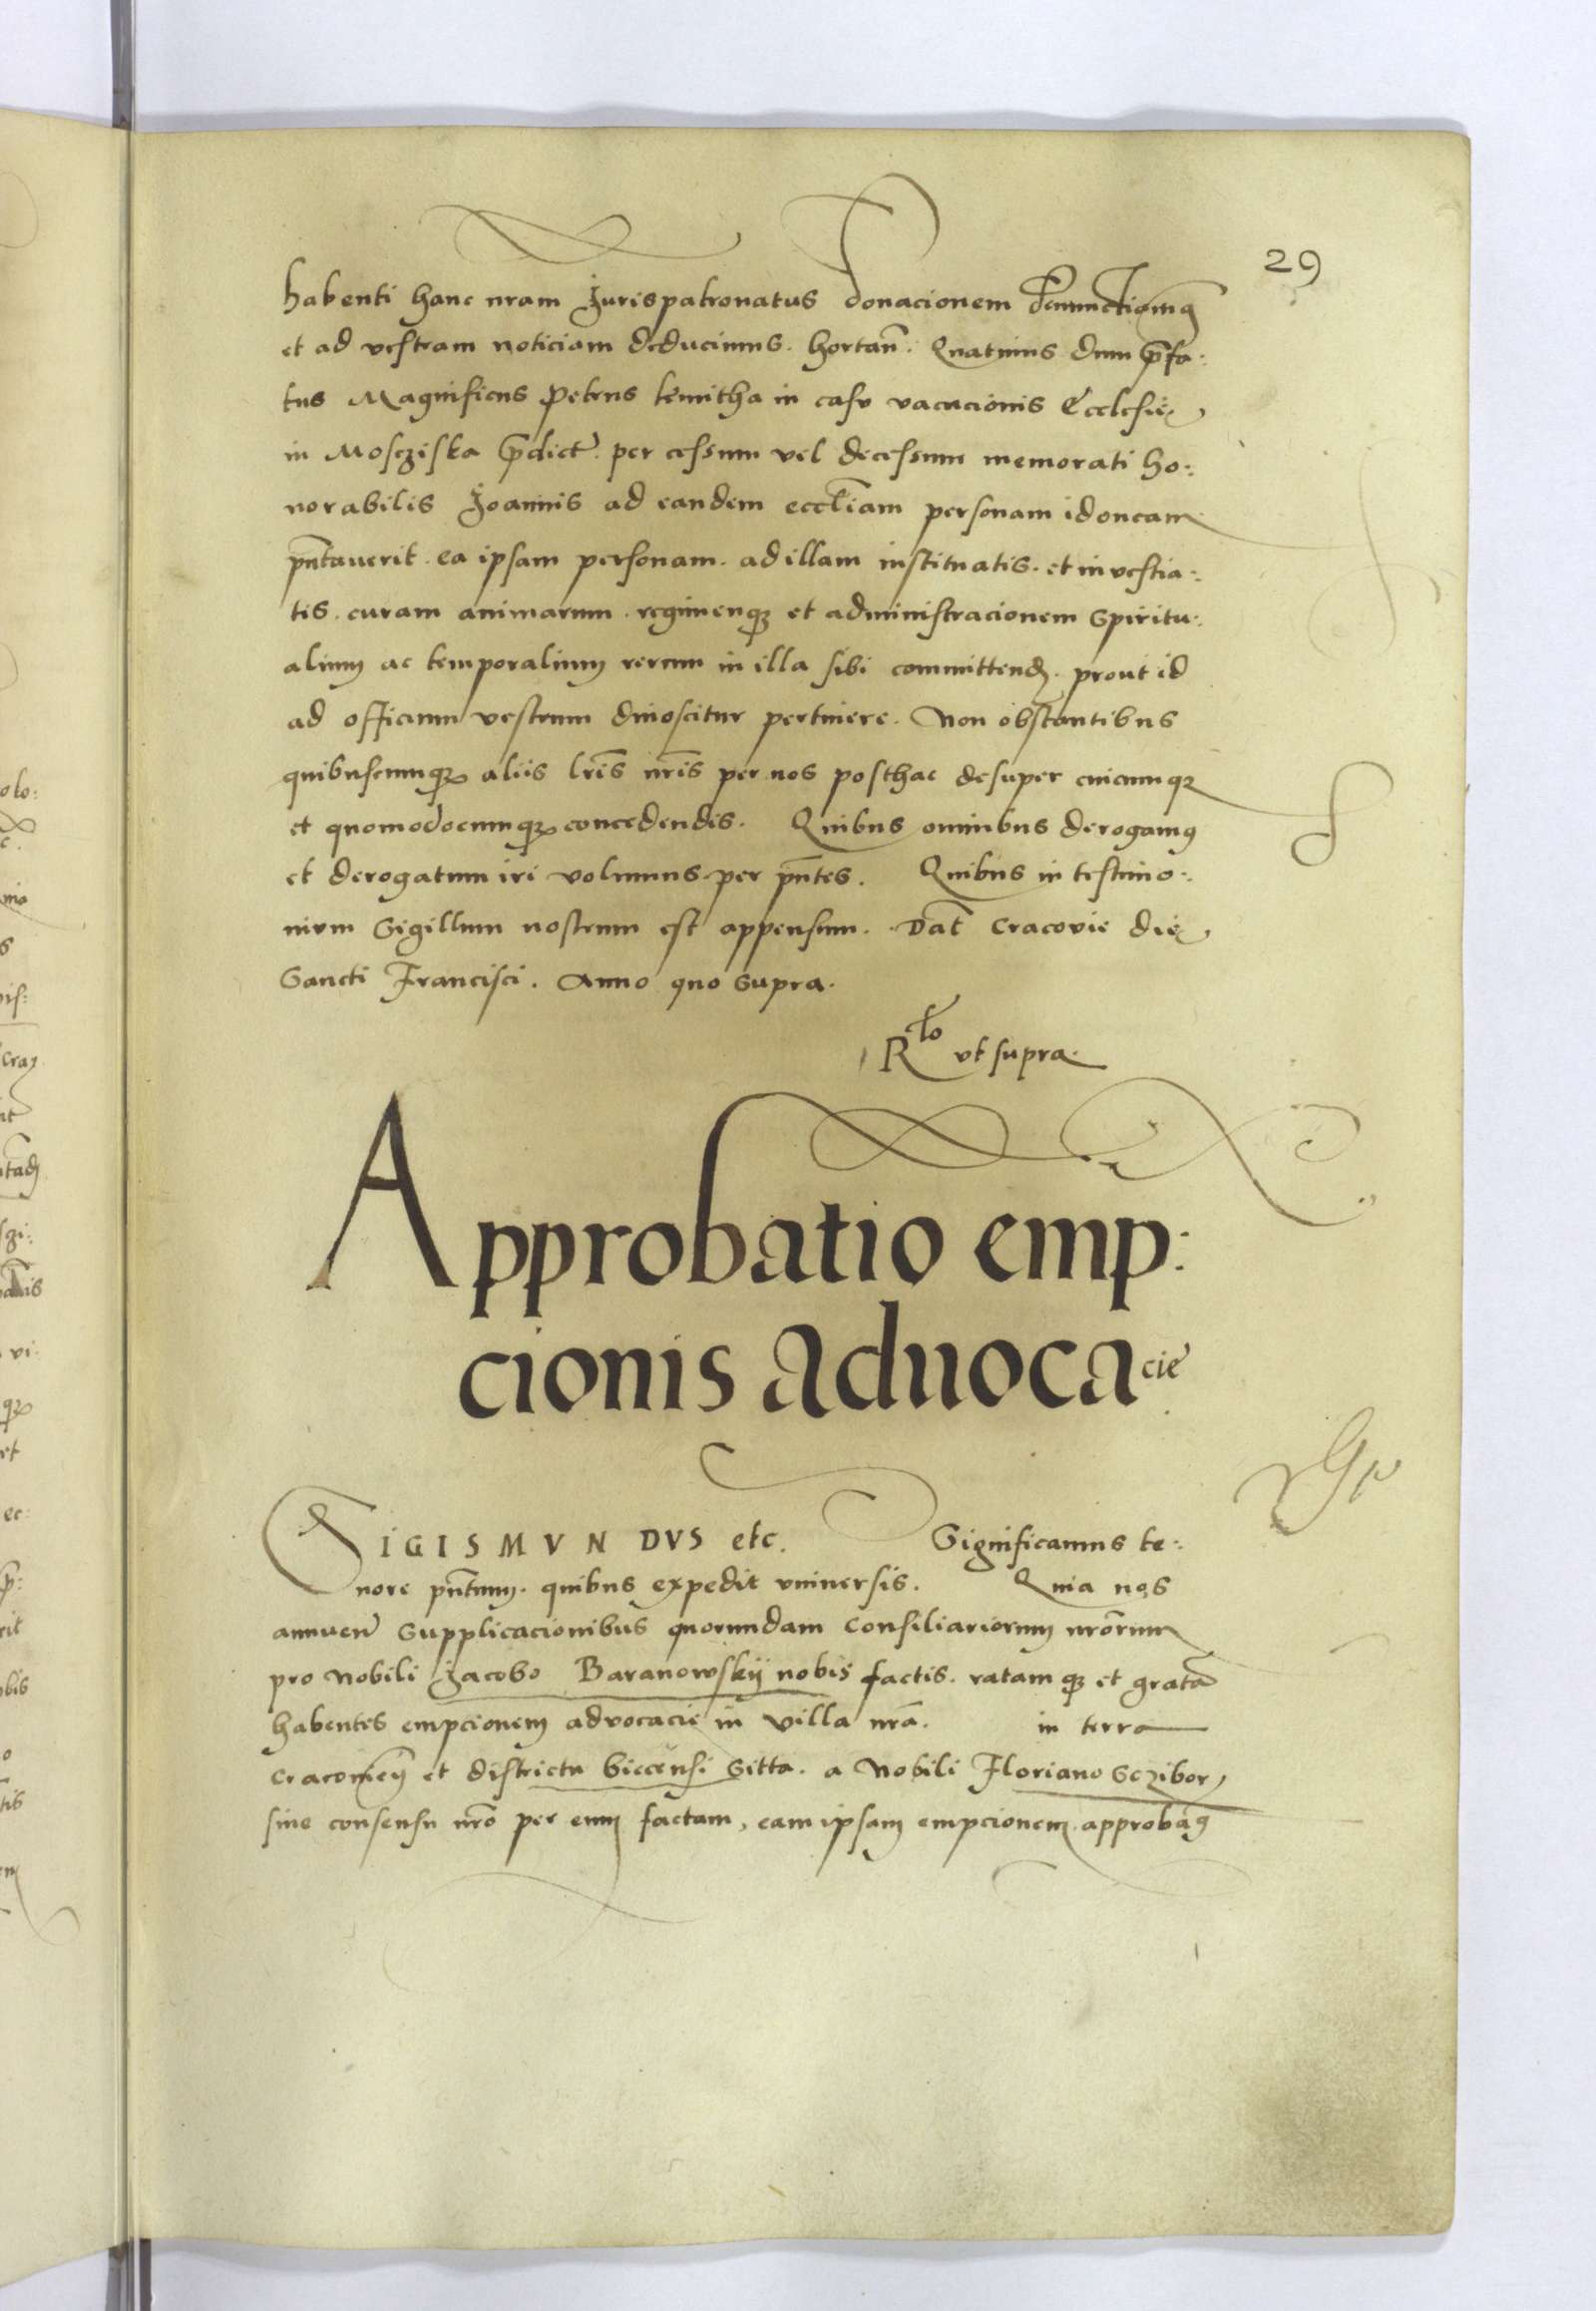 29
habenti hanc nram Jurispatronatus donacionem denunctiamq
et ad vestram noticiam deducimus. hortan. Quatinus dum prefa:
tus Magnificus Petrus kmitha in casu vacacionis Ecclesie
in Moscziska predict. per cessum vel decessum memorati ho:
norabilis Joannis ad eandem eccliam personam idoneam
pntaverit. ea ipsam personam. ad illam instituatis. et investia:
tis. curam animarum. regimenq et administracionem Spiritu:
alium ac temporalium rerum in illa sibi committend. prout id
ad officium vestrum dinoscitur pertinere. Non obstantibus
quibuscumq aliis lris nris per nos posthac desuper cuicumq
et quomodocumq concedendis. Quibus omnibus derogamus
et derogatum iri volumus per pntes. Quibus in testimo:
nium Sigillum nostrum est appensum. Dat Cracovie die
Sancti Francisci. Anno quo supra.
Rlo vt supra
Approbatio emp:
cionis aduoca cie
SIGISMVNDVS etc. Significamus te:
nore pntium. quibus expedit vniuersis. Quia nos
annuen Supplicacionibus quorundam Consiliariorum nrorum
pro Nobili Jacobo Baranowskij nobis factis. ratam q et grata
habentes empcionem advocacie in villa nra. in terra
Cracovien et districtu bieccensi Sitta. a Nobili Floriano Sczibor
sine consensu nro per eum factam, eam ipsam empcionem approbaq